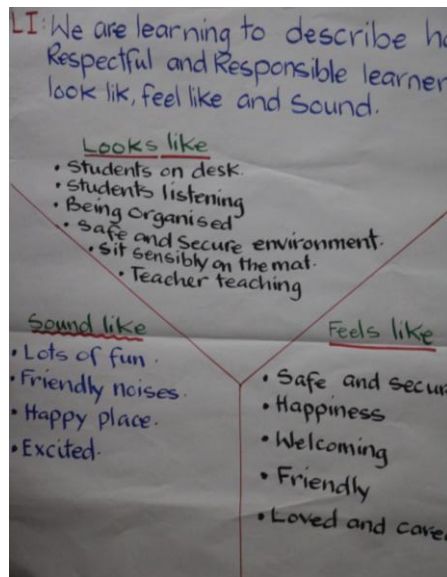 LI: We are learning to describe ho
Respectful and Responsible learner
look lik, feel like and Sound.
Looks like
• Students on desk.
• Students listening
• Being Organised
• Safe and Secure environment.
• Sit sensibly on the mat.
• Teacher teaching
Sound like
• Lots of fun.
• Friendly noises.
• Happy place.
• Excited.
Feels like
• Safe and secur
• Happiness
• Welcoming
• Friendly
• Loved and care